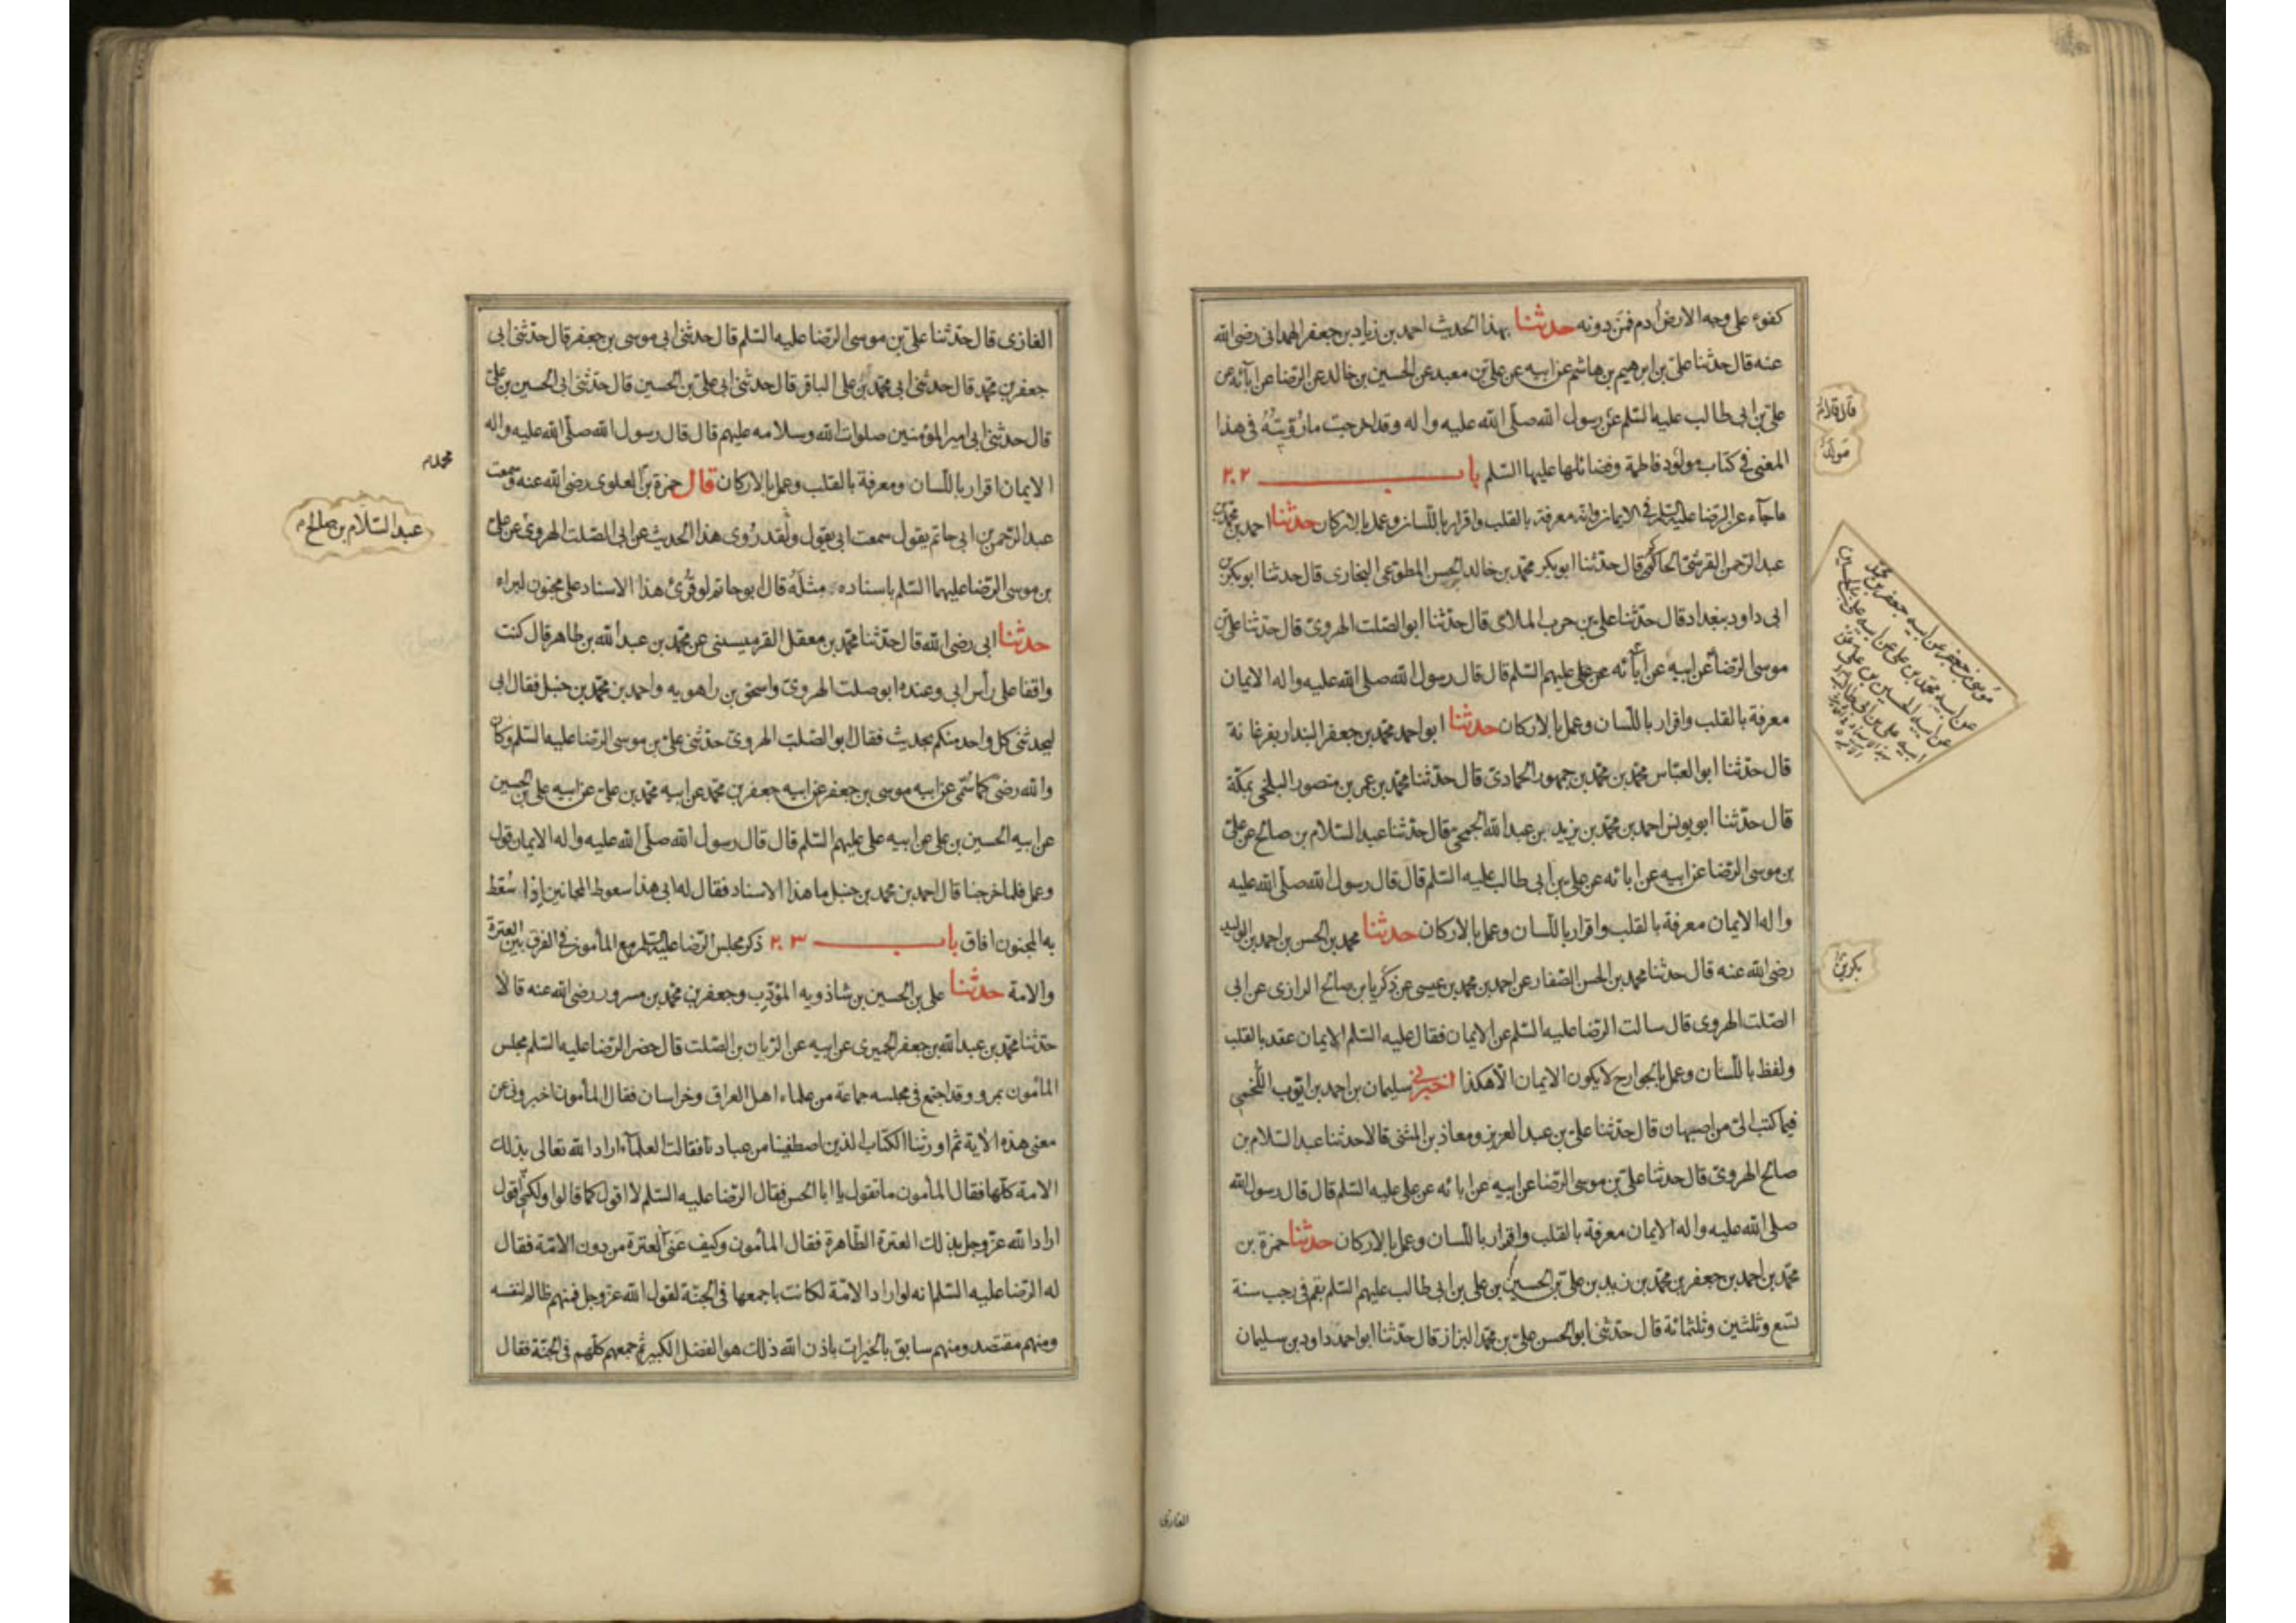 كفوء على وجه الارض ادم فمن دونه حدثنا بهذا الحديث احمد بن زياد بن جعفر الهمدانى رضى الله
عنه قال حدثنا على بن ابرهيم بن هاشم عن ابيه عن على بن معبد عن الحسين بن خالد عن الرضا عن آبائه عن
على بن ابى طالب عليه السلم عن رسول الله صلى الله عليه واله وقد اخرجت ما رويته فى هذا
المعنى فى كتاب مولود فاطمة وفضائلها عليها السلم باب ٢٠٢
ما جآء عن الرضا عليه السلم فى الايمان وانه معرفة بالقلب واقرار باللسان وعمل بالاركان حدثنا احمد بن محمد بن
عبد الرحمن القرشى الحاكم قال حدثنا ابو بكر محمد بن خالد الحسن المطوعى البخارى قال حدثنا ابو بكر بن
ابى داود ببغداد قال حدثنا على بن حرب الملاى قال حدثنا ابو الصلت الهروى قال حدثنا على بن
موسى الرضا عن ابيه عن آبائه عن على عليهم السلم قال قال رسول الله صلى الله عليه واله الايمان
معرفة بالقلب واقرار باللسان وعمل بالاركان حدثنا ابو احمد محمد بن جعفر البندار بفرغانة
قال حدثنا ابو العباس محمد بن محمد بن جمهور الحمادى قال حدثنا محمد بن عمر بن منصور البلخى بمكة
قال حدثنا ابو يونس احمد بن محمد بن يزيد بن عبد الله الجمحى قال حدثنا عبد السلام بن صالح عن على
بن موسى الرضا عن ابيه عن ابائه عن على بن ابى طالب عليه السلم قال قال رسول الله صلى الله عليه
واله الايمان معرفة بالقلب واقرار باللسان وعمل بالاركان حدثنا محمد بن الحسن بن احمد بن الوليد
رضى الله عنه قال حدثنا محمد بن الحسن الصفار عن احمد بن محمد بن عيسى عن ذكريا بن صالح الرازى عن ابى
الصلت الهروى قال سالت الرضا عليه السلم عن الايمان فقال عليه السلم الايمان عقد بالقلب
ولفظ باللسان وعمل بالجوارح لا يكون الايمان الا هكذا اخبرنى سليمان بن احمد بن ايوب اللخمى
فيما كتب الى من اصبهان قال حدثنا على بن عبد العزيز ومعاذ بن المثنى قالا حدثنا عبد السلام بن
صالح الهروى قال حدثنا على بن موسى الرضا عن ابيه عن ابائه عن على عليه السلم قال قال رسول الله
صلى الله عليه واله الايمان معرفة بالقلب واقرار باللسان وعمل بالاركان حدثنا حمزة بن
محمد بن احمد بن جعفر بن محمد بن زيد بن على بن الحسين بن على بن ابى طالب عليهم السلم بقم فى رجب سنة
تسع وثلثين وثلثمائة قال حدثنى ابو الحسن على بن محمد البزاز قال حدثنا ابو احمد داود بن سليمان
موسى بن جعفر عن ابيه جعفر بن محمد
عن ابيه محمد بن على عن ابيه على بن الحسين
عن ابيه الحسين بن على عن
ابيه على بن ابى طالب
بكر بن
الغازى
الغازى قال حدثنا على بن موسى الرضا عليه السلم قال حدثنى ابى موسى بن جعفر قال حدثنى ابى
جعفر بن محمد قال حدثنى ابى محمد بن على الباقر قال حدثنى ابى على بن الحسين قال حدثنى ابى الحسين بن على
قال حدثنى ابى امير المؤمنين صلوات الله وسلامه عليهم قال قال رسول الله صلى الله عليه واله
الايمان اقرار باللسان ومعرفة بالقلب وعمل بالاركان قال حمزة بن العلوى رضى الله عنه وسمعت
محمد
عبد الرحمن بن ابى حاتم يقول سمعت ابى يقول ولقد روى هذا الحديث عن ابى الصلت الهروى عن على
عبد السلام بن صالح
بن موسى الرضا عليهما السلم باسناده مثله قال ابو حاتم لو قرئ هذا الاسناد على مجنون لبراه
حدثنا ابى رضى الله قال حدثنا محمد بن معقل القرميسنى عن محمد بن عبد الله بن طاهر قال كنت
واقفا على رأس ابى وعنده ابو صلت الهروى واسحق بن راهويه واحمد بن محمد بن حنبل فقال ابى
ليحدثنى كل واحد منكم بحديث فقال ابو الصلت الهروى حدثنى على بن موسى الرضا عليه السلم وكان
والله رضى كما سمى عن ابيه موسى بن جعفر عن ابيه جعفر بن محمد عن ابيه محمد بن على عن ابيه على بن الحسين
عن ابيه الحسين بن على عن ابيه على عليهم السلم قال قال رسول الله صلى الله عليه واله الايمان قول
وعمل فلما خرجنا قال احمد بن محمد بن حنبل ما هذا الاسناد فقال له ابى هذا سعوط المجانين إذا سُقط
به المجنون افاق باب ٢٠٣ ذكر مجلس الرضا عليه السلم مع المأمون فى الفرق بين العترة
والامة حدثنا على بن الحسين بن شاذويه المؤدب وجعفر بن محمد بن مسرور رضى الله عنه قالا
حدثنا محمد بن عبد الله بن جعفر الحميرى عن ابيه عن الريان بن الصلت قال حضر الرضا عليه السلم مجلس
المأمون بمرو وقد اجتمع فى مجلسه جماعة من علماء اهل العراق وخراسان فقال المأمون اخبرونى عن
معنى هذه الاية ثم اورثنا الكتاب الذين اصطفينا من عبادنا فقالت العلمآء اراد الله تعالى بذلك
الامة كلها فقال المأمون ما تقول يا ابا الحسن فقال الرضا عليه السلم لا اقول كما قالوا ولكنى اقول
اراد الله عز وجل بذلك العترة الطاهرة فقال المأمون وكيف عنى العترة من دون الامة فقال
له الرضا عليه السلم انه لو اراد الامة لكانت باجمعها فى الجنة لقول الله عز وجل فمنهم ظالم لنفسه
ومنهم مقتصد ومنهم سابق بالخيرات باذن الله ذلك هو الفضل الكبير ثم جمعهم كلهم فى الجنة فقال